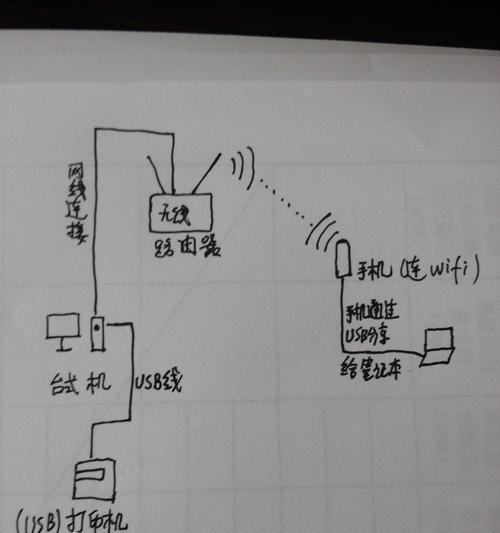 网线连接
无线
路由器
手机(连wifi)
手机通过
USB分享
给笔记本
台式机
USB线
(USB)打印机